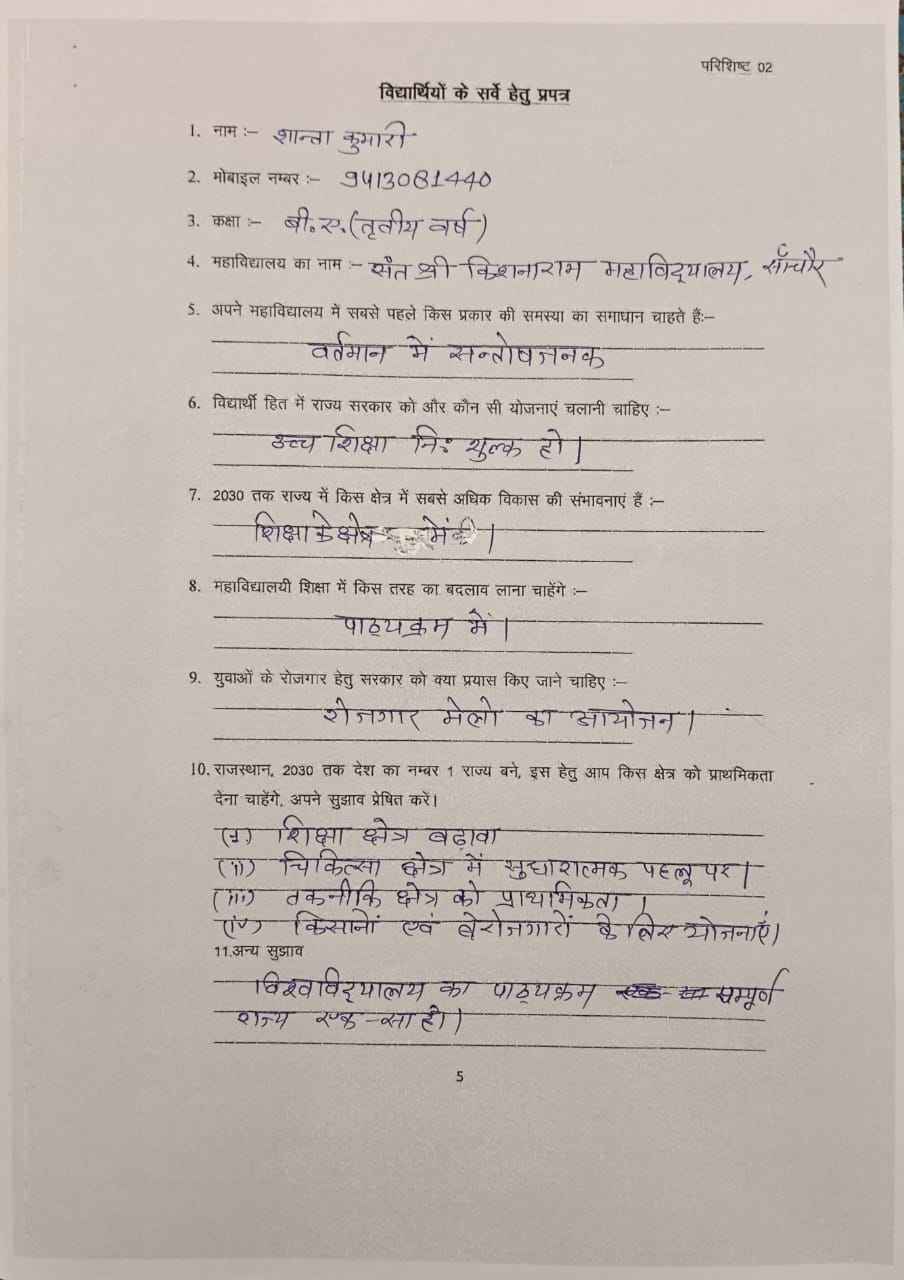 परिशिष्ट 02
विद्यार्थियों के सर्वे हेतु प्रपत्र
1. नाम :– शान्ता कुमारी
2. मोबाइल नम्बर :– 9413081440
3. कक्षा :– बी.ए.(तृतीय वर्ष)
4. महाविद्यालय का नाम :– संत श्री किशनाराम महाविद्यालय, साँचौर
5. अपने महाविद्यालय में सबसे पहले किस प्रकार की समस्या का समाधान चाहते हैः–
वर्तमान में सन्तोषजनक
6. विद्यार्थी हित में राज्य सरकार को और कौन सी योजनाएं चलानी चाहिए :–
उच्च शिक्षा निः शुल्क हो।
7. 2030 तक राज्य में किस क्षेत्र में सबसे अधिक विकास की संभावनाएं हैं :–
शिक्षा के क्षेत्र में की।
8. महाविद्यालयी शिक्षा में किस तरह का बदलाव लाना चाहेंगे :–
पाठ्यक्रम में।
9. युवाओं के रोजगार हेतु सरकार को क्या प्रयास किए जाने चाहिए :–
रोजगार मेलो का आयोजन।
10. राजस्थान, 2030 तक देश का नम्बर 1 राज्य बने, इस हेतु आप किस क्षेत्र को प्राथमिकता
देना चाहेंगे, अपने सुझाव प्रेषित करें।
(i) शिक्षा क्षेत्र बढ़ावा
(ii) चिकित्सा क्षेत्र में सुधारात्मक पहलू पर।
(iii) तकनीकि क्षेत्र को प्राथमिकता।
(iv) किसानों एवं बेरोजगारों के लिए योजनाएं।
11.अन्य सुझाव
विश्वविद्यालय का पाठ्यक्रम सम्पूर्ण
राज्य एक-सा हो।
5